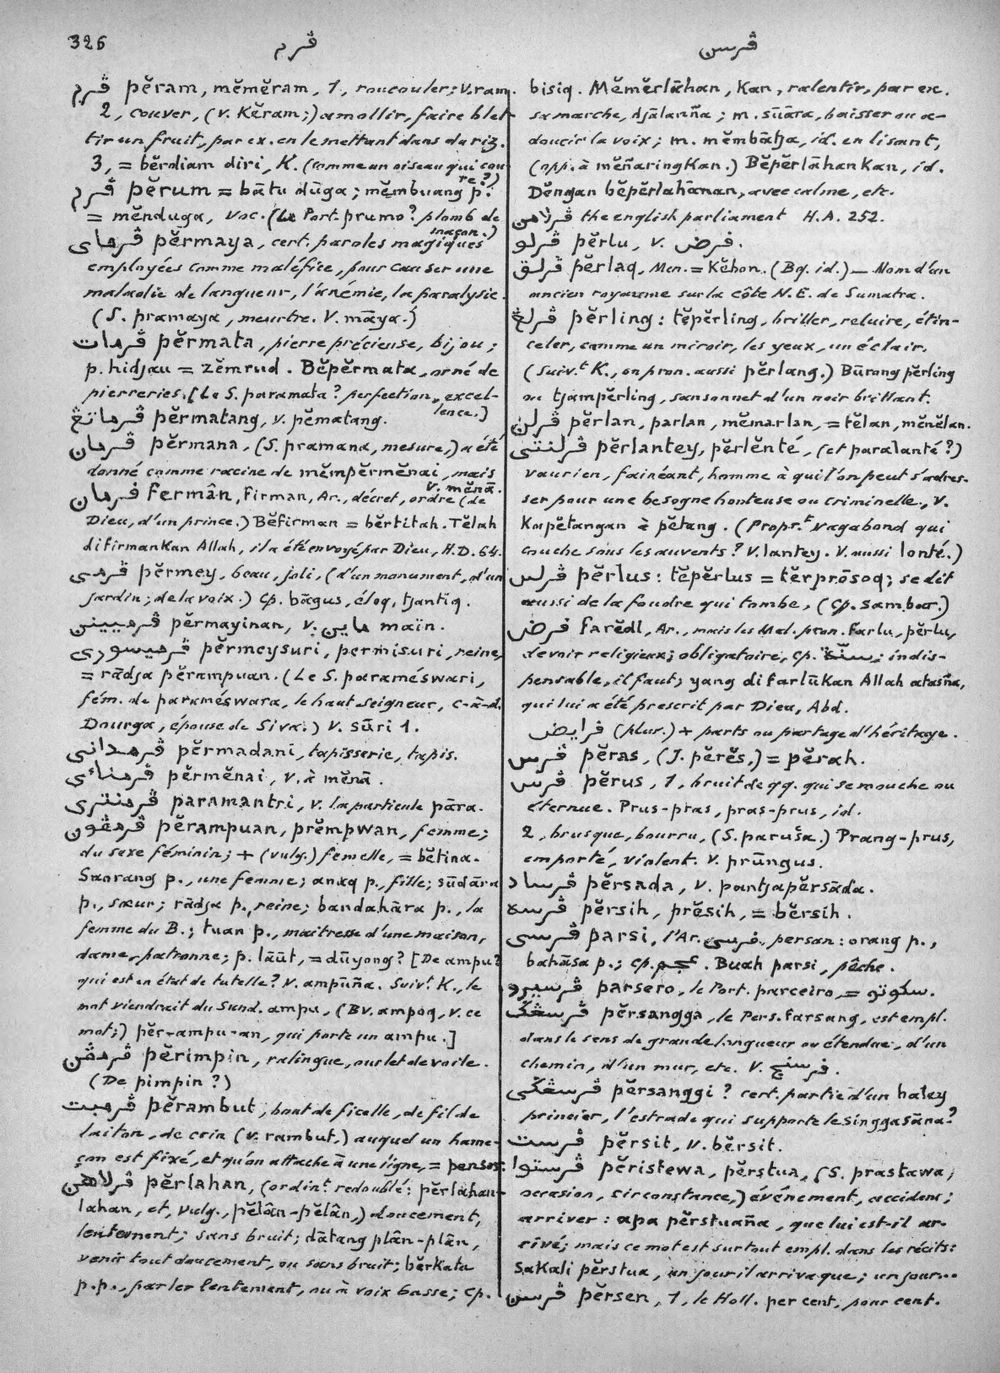 326
ڤرم
ڤرسن
ڤرم pĕram, mĕmĕram, 1, roucouler; v. ram.
2, couver, (v. Kĕram;) amollir, faire blet-
tir un fruit, par ex. en le mettant dans du riz.
3, = bĕrdiam diri, K. (comme un oiseau qui cou-
ve?)
ڤرم pĕrum = bātu dūga; mĕmbuang p.
= mĕnduga, voc. (Le Port. prumo? plomb de
maçon.)
ڤرماي pĕrmaya, cert. paroles magiques
employées comme maléfice, pour causer une
maladie de langueur, l'anémie, la paralysie.
(S. pramaya, meurtre. V. māya.)
ڤرمات pĕrmata, pierre précieuse, bijou;
p. hidjau = zĕmrud. Bĕpĕrmata, orné de
pierreries. [Le S. paramata? perfection, excel-
lence.]
ڤرماتڠ pĕrmatang, v. pĕmatang.
ڤرمان pĕrmana, (S. pramana, mesure,) a été
donné comme racine de mĕmpĕrmĕnai, mais
v. mĕnā.
فرمان fermân, firman, Ar., décret, ordre (de
Dieu, d'un prince.) Bĕfirman = bĕrtitah. Tĕlah
difirmanKan Allah, il a été envoyé par Dieu, H.D. 64.
ڤرمي pĕrmey, beau, joli, (d'un monument, d'un
jardin; de la voix.) Cp. bāgus, éloq, tjantiq.
ڤرميينن pĕrmayinan, v. ماين maïn.
ڤرميسوري pĕrmeysuri, permisuri, reine,
= rādja pĕrampuan. (Le S. paraméswari,
fém. de paraméswara, le haut seigneur, c-à-d.
Dourga, épouse de Siva.) V. sūri 1.
ڤرمداني pĕrmadani, tapisserie, tapis.
ڤرمناءي pĕrmĕnai, v. à mĕnā.
ڤرمنتري paramantri, v. la particule pāra.
ڤرمڤون pĕrampuan, prĕmpwan, femme;
du sexe féminin; + (vulg.) femelle, = bĕtina.
Saorang p., une femme; anaq p., fille; sūdāra
p., sœur; rādja p., reine; bandahāra p., la
femme du B.; tuan p., maitresse d'une maison,
dame, patronne; p. lāūt, = dūyong? [De ampu?
qui est en état de tutelle? V. ampūña. Suivt K., le
mot viendrait du Sund. ampu, (Bv. ampoq, v. ce
mot;) pĕr-ampu-an, qui porte un ampu.]
ڤرمڤن pĕrimpin, ralingue, ourlet de voile.
(De pimpin?)
ڤرمبت pĕrambut, bout de ficelle, de fil de
laiton, de crin (v. rambut,) auquel un hame-
çon est fixé, et qu'on attache à une ligne, = pensos.
ڤرلاهن pĕrlahan, (ordint redoublé: pĕrlāhan-
lahan, et, vulg., pĕlân-pĕlân,) doucement,
lentement; sans bruit; dātang plân-plân,
venir tout doucement, ou sans bruit; bĕrKata
p.p., parler lentement, ou à voix basse; cp.
bisiq. Mĕmĕrlāhan, Kan, ralentir, par ex.
sa marche, djālanña; m. sūāra, baisser ou a-
doucir la voix; m. mĕmbātja, id. en lisant,
(opp. à mĕñaringKan.) BĕpĕrlāhanKan, id.
Dĕngan bĕpĕrlahānan, avec calme, etc.
ڤرلامن the english parliament H.A. 252.
ڤرلو pĕrlu, v. فرض.
ڤرلق pĕrlaq, Men. = Kĕhon. (Bg. id.) — Nom d'un
ancien royaume sur la côte N.E. de Sumatra.
ڤرلڠ pĕrling: tĕpĕrling, briller, reluire, étin-
celer, comme un miroir, les yeux, un éclair.
(Suivt K., on pron. aussi pĕrlang.) Būrong pĕrling
ou tjampĕrling, sansonnet d'un noir brillant.
ڤرلن pĕrlan, parlan, mĕmarlan, = tĕlan, mĕnĕlan.
ڤرلنتي pĕrlantey, pĕrlĕnté, (et paralanté?)
vaurien, fainéant, homme à qui l'on peut s'adres-
ser pour une besogne honteuse ou criminelle, v.
Kapĕtangan à pĕtang. (Proprt vagabond qui
couche sous les auvents? V. lantey. V. aussi lonté.)
ڤرلس pĕrlus: tĕpĕrlus = tĕrprōsoq; se dit
aussi de la foudre qui tombe, (Cp. sambar.)
فرض farĕdl, Ar., mais les Mal. pron. farlu, pĕrlu,
devoir religieux; obligatoire, cp. سنة; indis-
pensable, il faut; yang difarlūKan Allah atasña,
qui lui a été prescrit par Dieu, Abd.
فرايض (plur.) + parts ou partage d'héritage.
ڤرس pĕras, (J. pĕrĕs,) = pĕrah.
ڤرس pĕrus, 1, bruit de qq. qui se mouche ou
éternue. Prus-pras, pras-prus, id.
2, brusque, bourru, (S. paruša.) Prang-prus,
emporté, violent. V. prūngus.
ڤرساد pĕrsada, v. pantjapĕrsāda.
ڤرسه pĕrsih, prĕsih, = bĕrsih.
ڤرسي parsi, l'Ar. فرسي, persan: orang p.,
bahāsa p.; cp. عجم. Buah parsi, pêche.
ڤرسيرو parsero, le Port. parceiro, = سكوتو.
ڤرسڠݢ pĕrsangga, le Pers. farsang, est empl.
dans le sens de grande longueur ou étendue, d'un
chemin, d'un mur, etc. V. فرسنج.
ڤرسڠݢي pĕrsanggi? cert. partie d'un baley
princier, l'estrade qui supporte le singgasāna?
ڤرست pĕrsit, v. bĕrsit.
ڤرستوا pĕristewa, pĕrstua, (S. prastawa,
occasion, circonstance,) événement, accident;
arriver: apa pĕrstuaña, que lui est-il ar-
rivé; mais ce mot est surtout empl. dans les récits:
saKali pĕrstua, un jour il arriva que; un jour...
ڤرسن pĕrsen, 1, le Holl. per cent, pour cent.